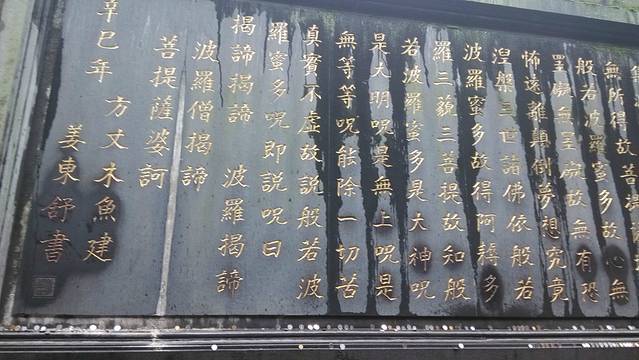 無所得故菩提
般若波羅蜜多故心無
罣礙無罣礙故無有恐
怖遠離顛倒夢想究竟
涅槃三世諸佛依般若
波羅蜜多故得阿耨多
羅三藐三菩提故知般
若波羅蜜多是大神呪
是大明呪是無上呪是
無等等呪能除一切苦
真實不虛故説般若波
羅蜜多呪即説呪曰
揭諦揭諦 波羅揭諦
波羅僧揭諦
菩提薩婆訶
辛巳年 方丈木魚建
姜東舒書